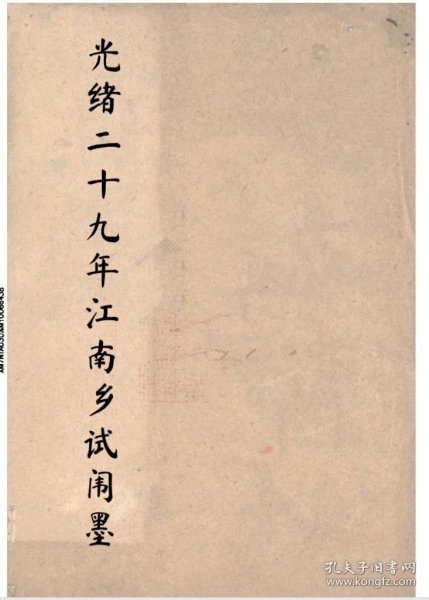 光绪二十九年江南乡试闱墨
孔夫子旧书网
www.kongfz.com